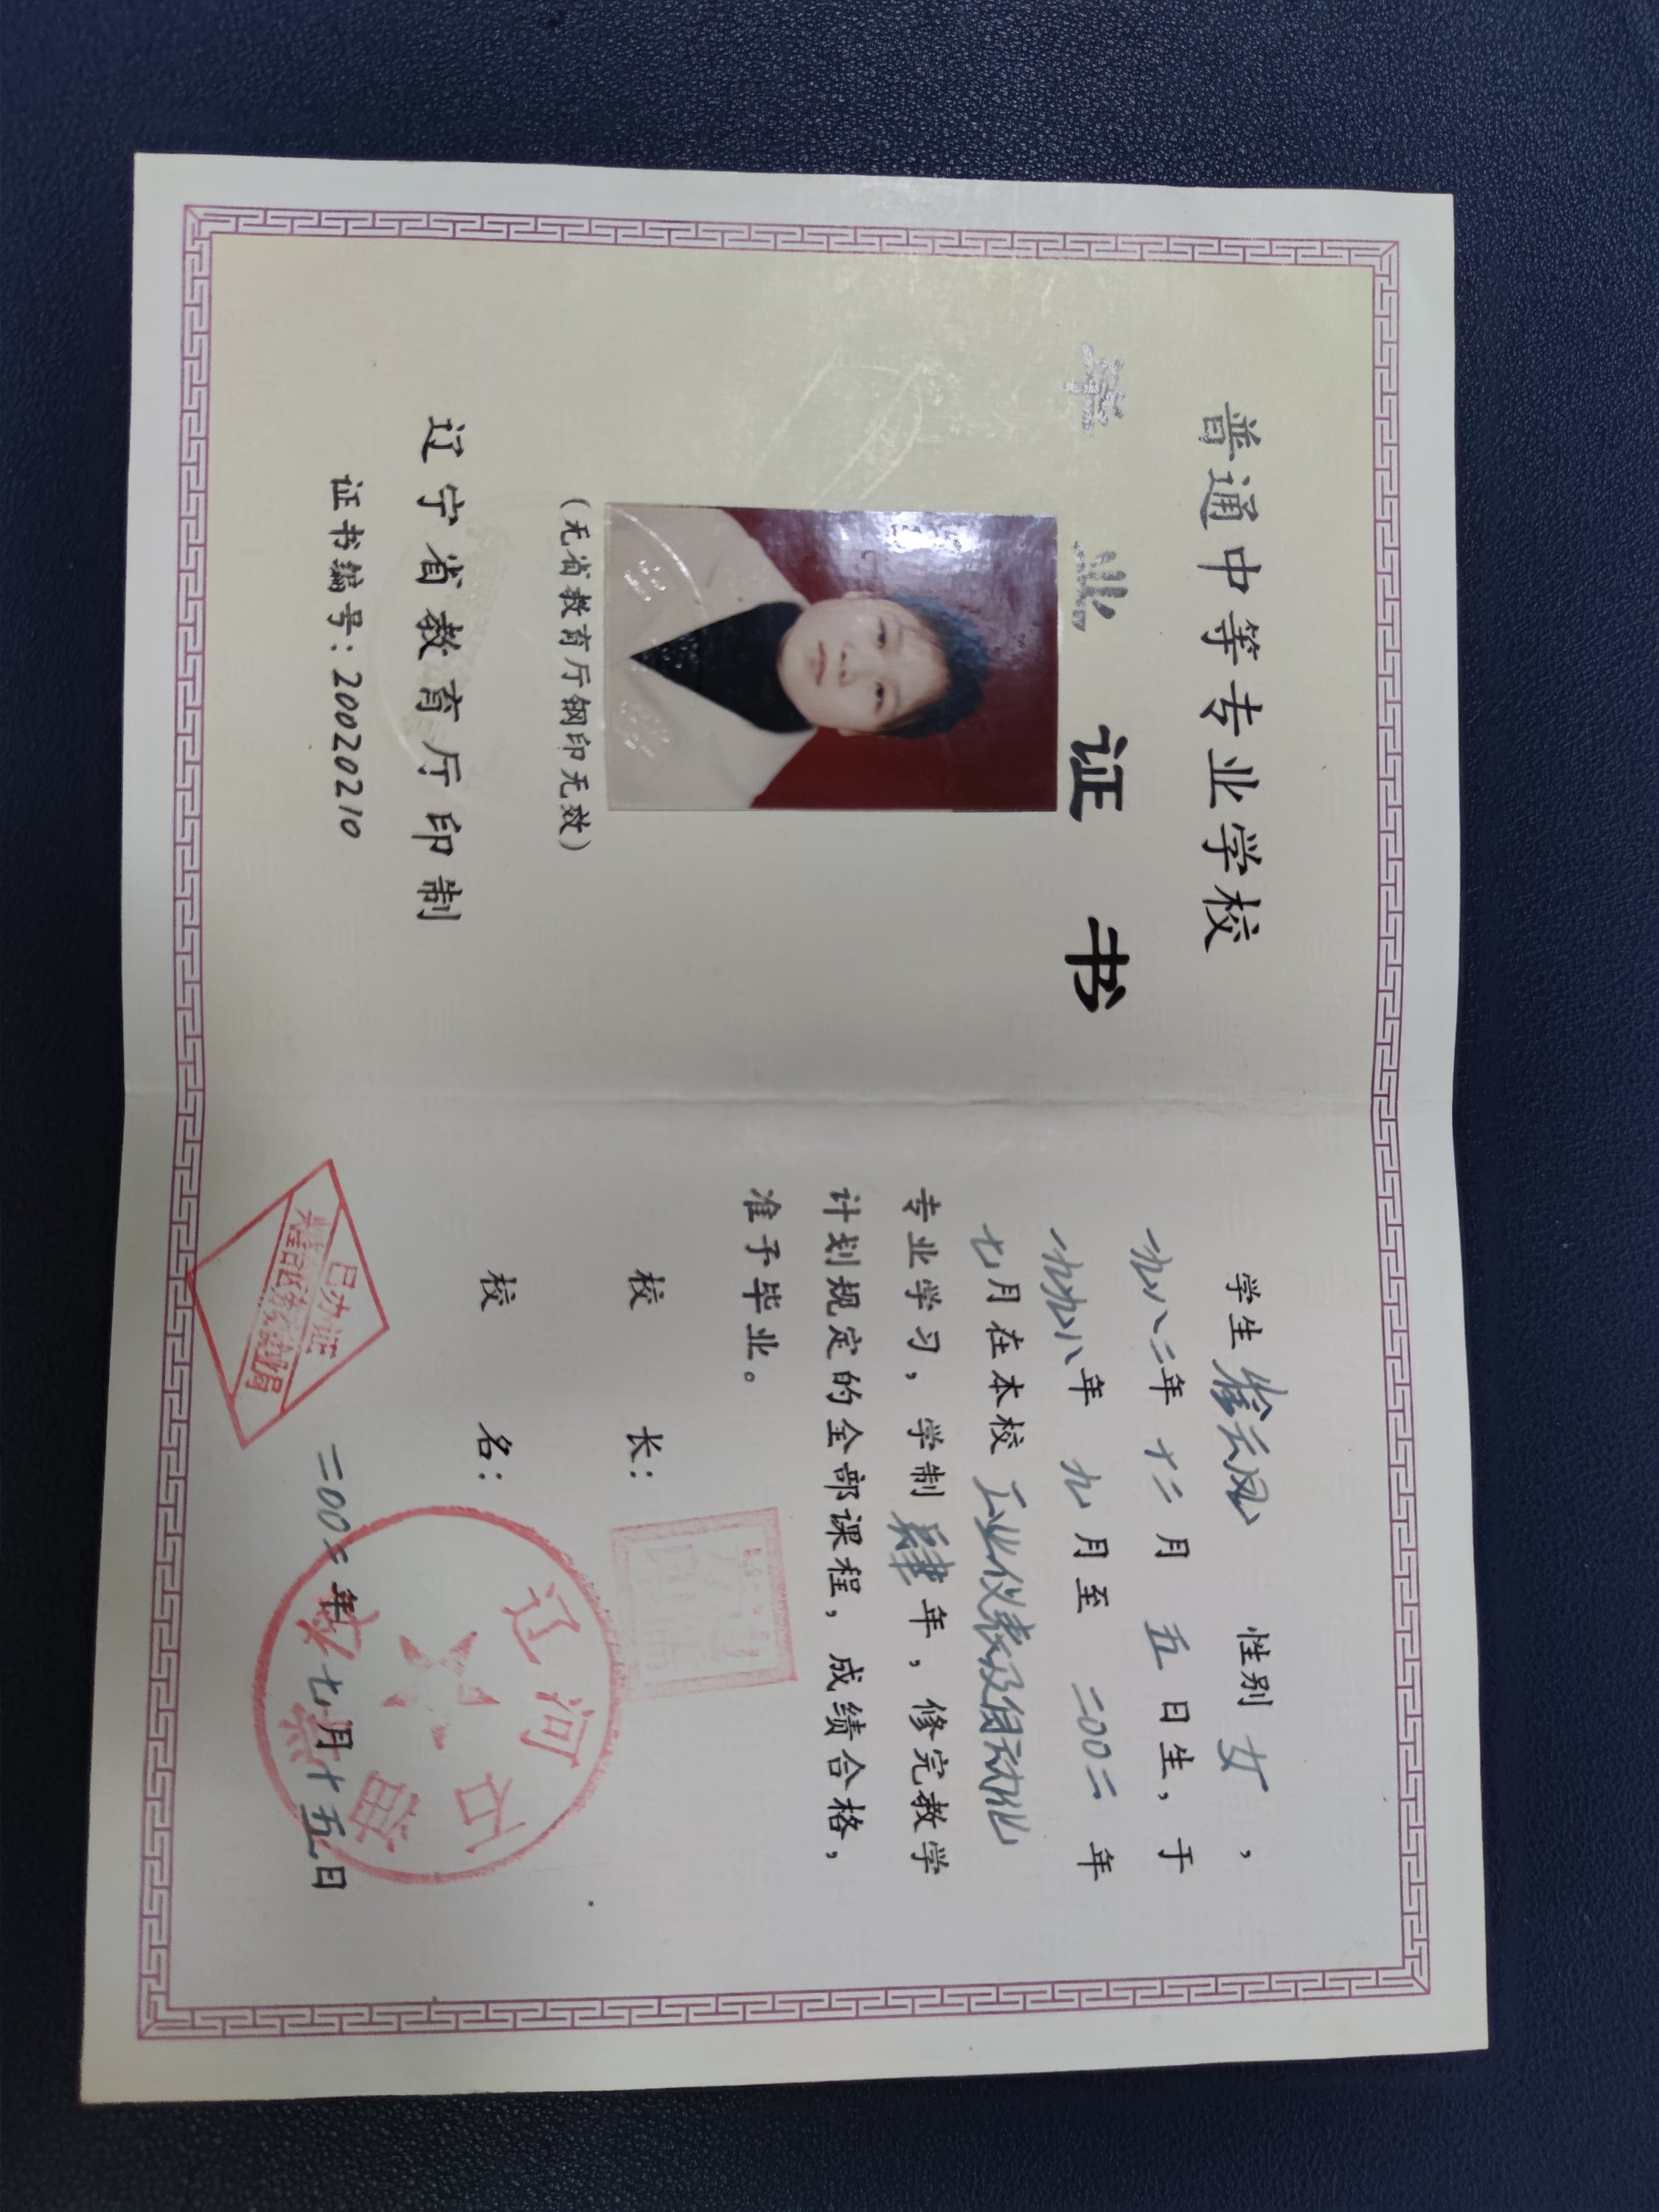 普通中等专业学校
毕业证书
(无省教育厅钢印无效)
辽宁省教育厅印制
证书编号：20020210
学生 徐云凤 性别 女，
一九八二年 十二 月 五 日生，于
一九九八年 九 月至 二00二 年
七月在本校 工业仪表及自动化
专业学习，学制 肆 年，修完教学
计划规定的全部课程，成绩合格，
准予毕业。
校 长：
校 名：
辽河石油
学校
二00二年七月十五日
已办证
兴隆台区劳务就业局